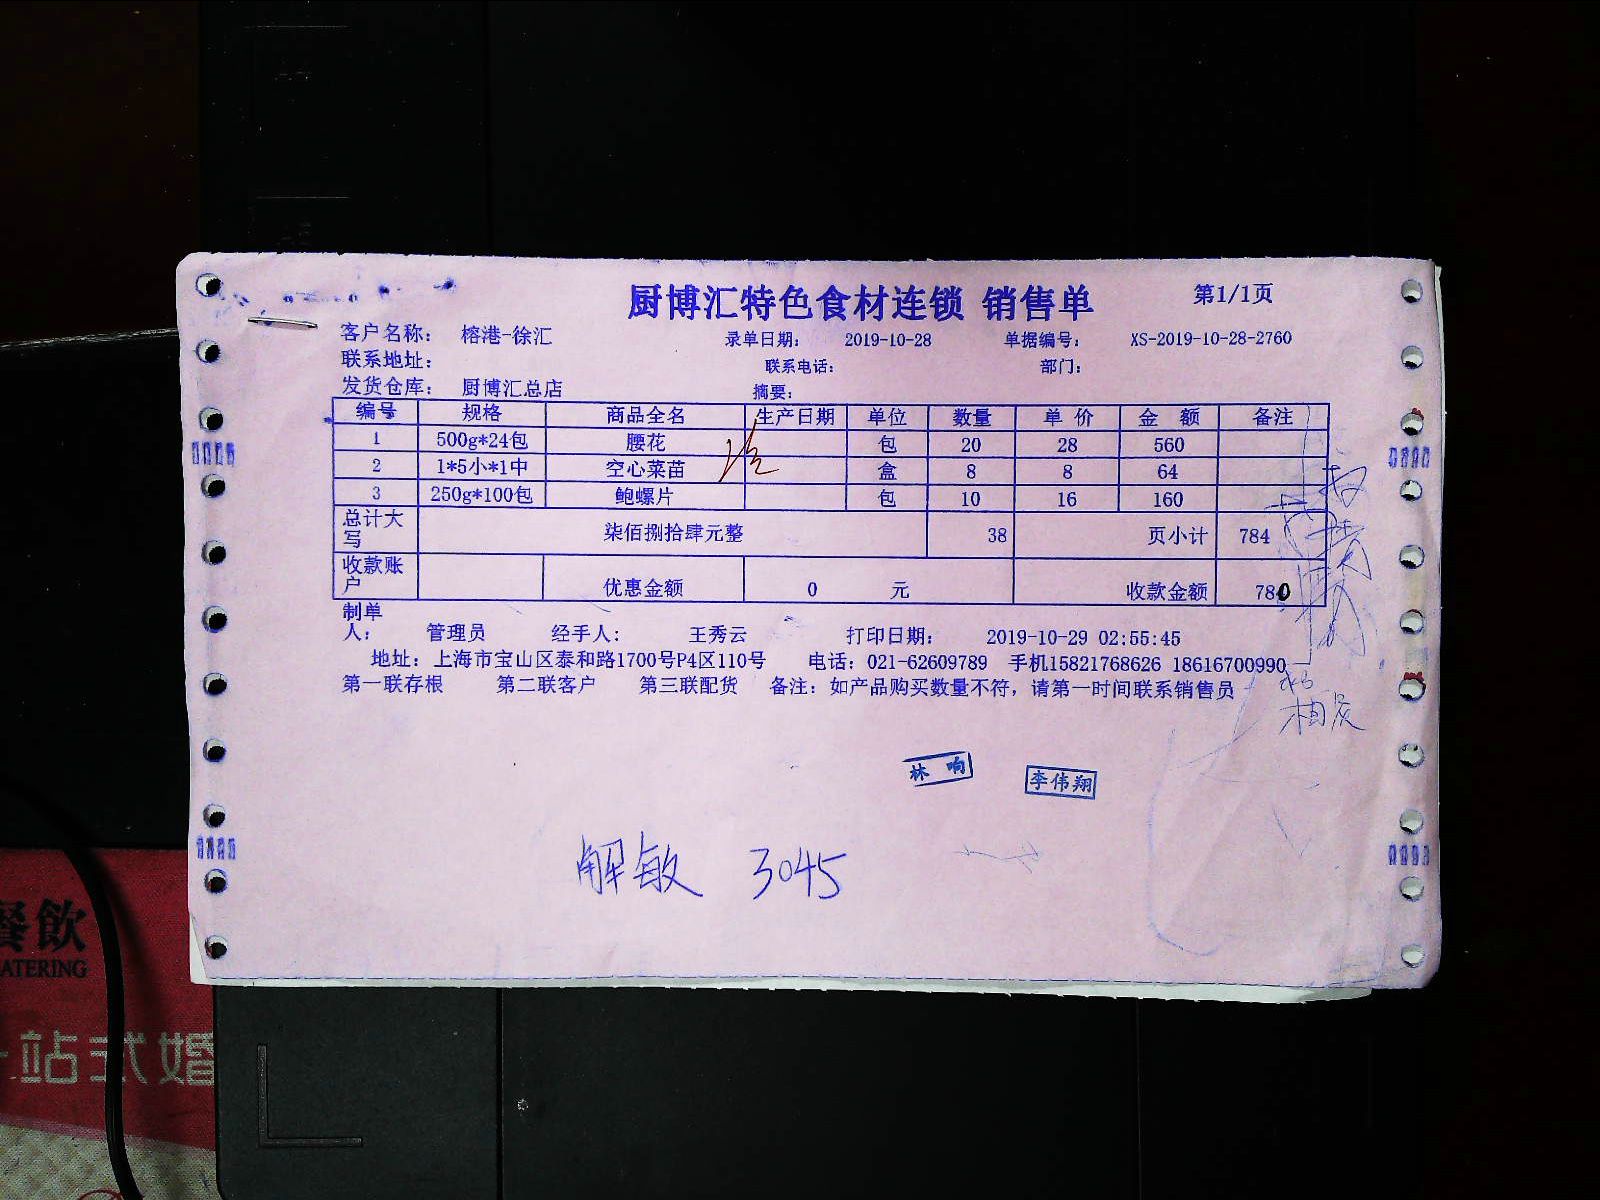 厨博汇特色食材连锁 销售单 第1/1页
客户名称： 榕港-徐汇 录单日期： 2019-10-28 单据编号： XS-2019-10-28-2760
联系地址： 联系电话： 部门：
发货仓库： 厨博汇总店 摘要：
编号 规格 商品全名 生产日期 单位 数量 单 价 金 额 备注
1 500g*24包 腰花 包 20 28 560
2 1*5小*1中 空心菜苗 盒 8 8 64
3 250g*100包 鲍螺片 包 10 16 160
总计大写 柒佰捌拾肆元整 38 页小计 784
收款账户 优惠金额 0 元 收款金额 780
制单人： 管理员 经手人： 王秀云 打印日期： 2019-10-29 02:55:45
地址：上海市宝山区泰和路1700号P4区110号 电话：021-62609789 手机15821768626 18616700990
第一联存根 第二联客户 第三联配货 备注：如产品购买数量不符，请第一时间联系销售员
林 响 李伟翔
解敏 3045
餐飲
ATERING
一站式婚